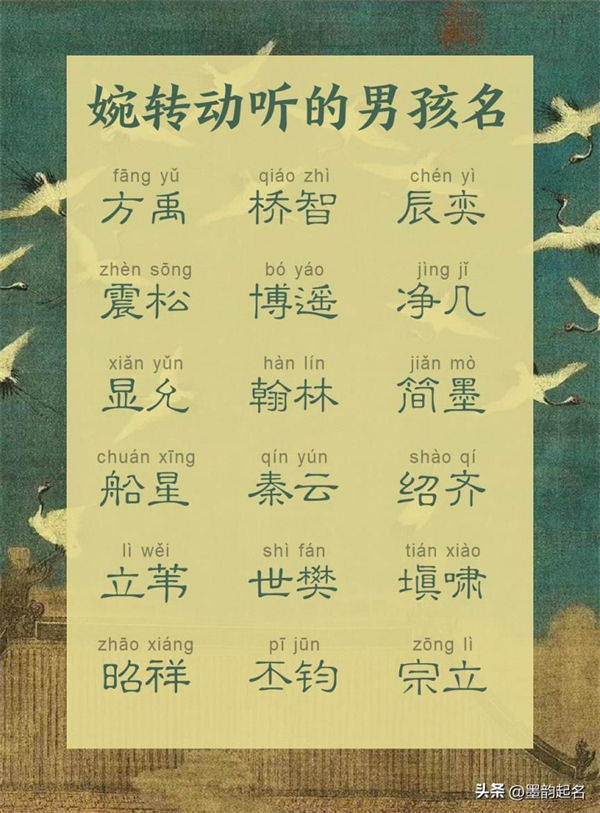 婉转动听的男孩名
fāng yǔ qiáo zhì chén yì
方禹 桥智 辰奕
zhèn sōng bó yáo jìng jǐ
震松 博遥 净几
xiǎn yǔn hàn lín jiǎn mò
显允 翰林 简墨
chuán xīng qín yún shào qí
船星 秦云 绍齐
lì wěi shì fán tián xiào
立苇 世樊 填啸
zhāo xiáng pī jūn zōng lì
昭祥 丕钧 宗立
头条 @墨韵起名